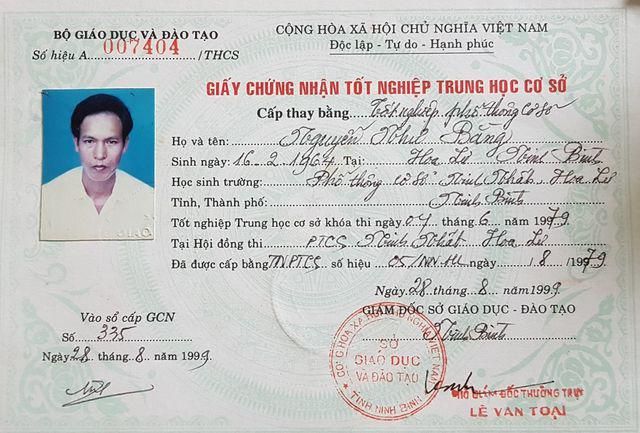 BỘ GIÁO DỤC VÀ ĐÀO TẠO
Số hiệu A 007404 /THCS
CỘNG HÒA XÃ HỘI CHỦ NGHĨA VIỆT NAM
Độc lập - Tự do - Hạnh phúc
GIẤY CHỨNG NHẬN TỐT NGHIỆP TRUNG HỌC CƠ SỞ
Cấp thay bằng Tốt nghiệp phổ thông cơ sở
Họ và tên: Nguyễn Như Băng
Sinh ngày: 16-2-1964. Tại: Hoa Lư Ninh Bình
Học sinh trường: Phổ thông cơ sở Ninh Nhất, Hoa Lư
Tỉnh, Thành phố: Ninh Bình
Tốt nghiệp Trung học cơ sở khóa thi ngày 04 tháng 6 năm 1979
Tại Hội đồng thi PTCS Ninh Nhất Hoa Lư
Đã được cấp bằng TNPTCS số hiệu 05/ ngày 1/8/1979
Ngày 28 tháng 8 năm 1999
GIÁM ĐỐC SỞ GIÁO DỤC - ĐÀO TẠO
Ninh Bình
Vào sổ cấp GCN
Số 335
Ngày 28 tháng 8 năm 1999
CỘNG HÒA XÃ HỘI CHỦ NGHĨA VIỆT NAM
SỞ
GIÁO DỤC
VÀ ĐÀO TẠO
TỈNH NINH BÌNH
PHÓ GIÁM ĐỐC THƯỜNG TRỰC
LÊ VĂN TOẠI